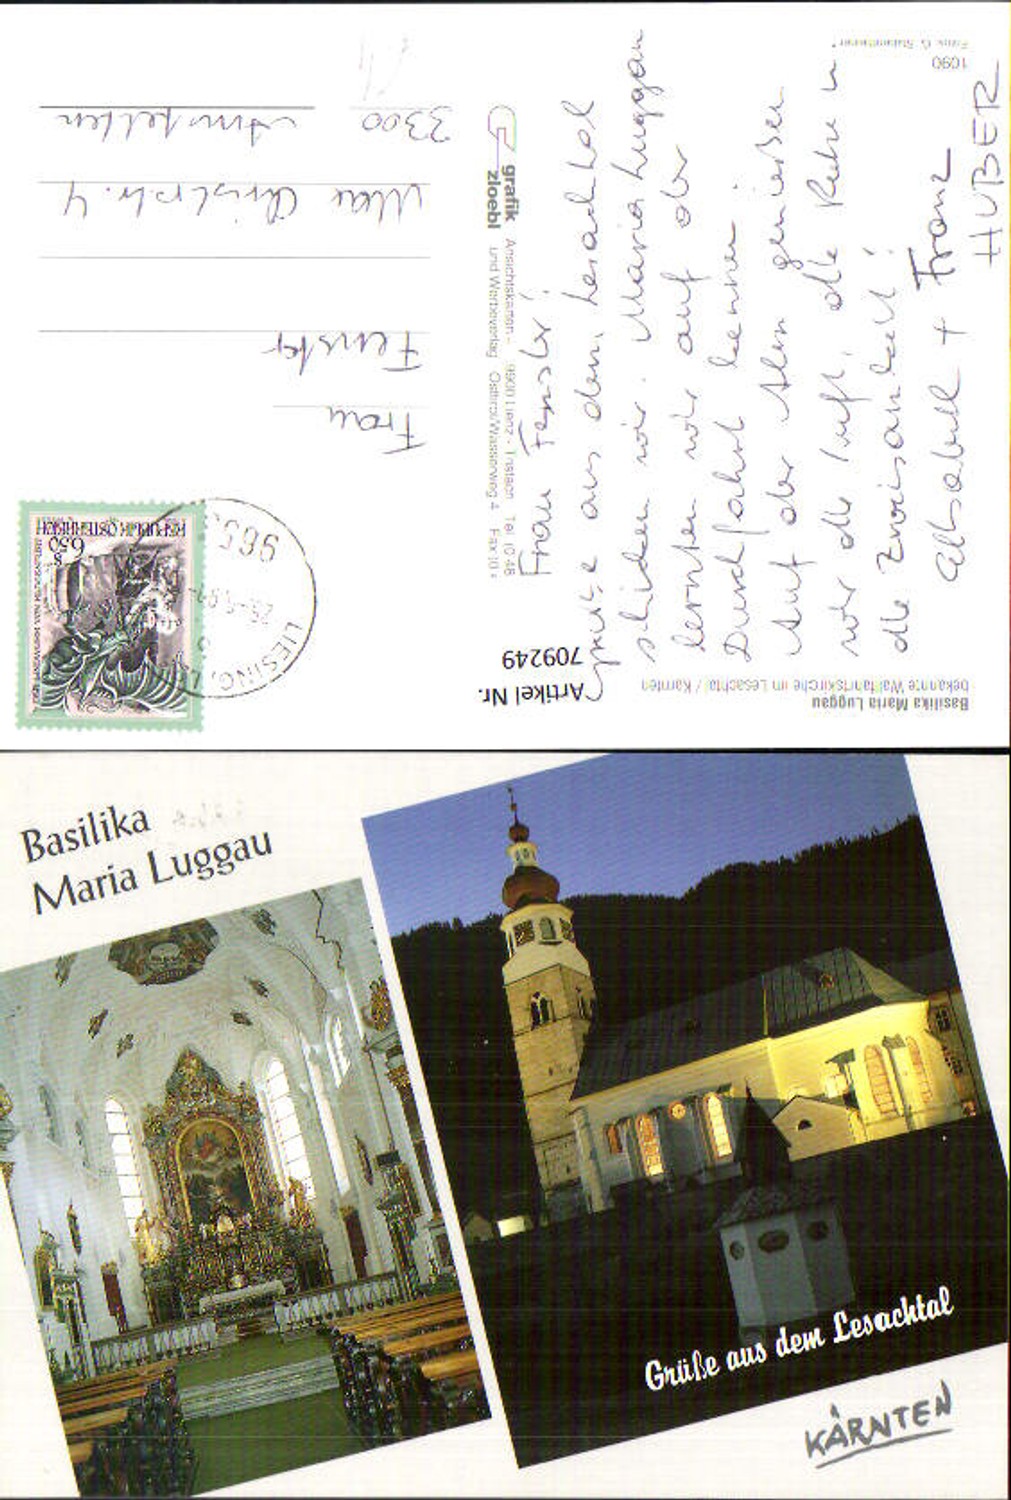 Basilika Maria Luggau
bekannte Wallfahrtskirche im Lesachtal / Kärnten
Artikel Nr.
709249
Frau Fenster!
Grüße aus dem Lesachtal
schicken wir. Maria Luggau
lernten wir auf der
Durchfahrt kennen!
Auf der Alm genießen
wir die Luft, die Ruhe u
die Zweisamkeit!
+ Franz
HUBER
1090
grafik
zloebl
Ansichtskarten - 9900 Lienz - Tristach
und Werbeverlag Osttirol/Wasserweg 4
REPUBLIK ÖSTERREICH
S 6.50
LIESING, L
Frau
Fenster
Max Christ str. 4
3300 Amstetten
Basilika
Maria Luggau
Grüße aus dem Lesachtal
KÄRNTEN